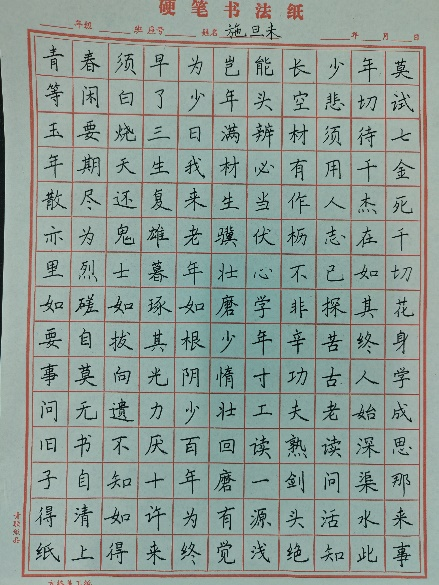 硬笔书法纸
年级 班 座号 姓名 施旦未 年 月 日
青春须早为岂能长少年莫
等闲白了少年头空悲切试
玉要烧三日满辨材须待七
年期天生我材必有用千金
散尽还复来生当作人杰死
亦为鬼雄老骥伏枥志在千
里烈士暮年壮心不已如切
如磋如琢如磨学非探其花
要自拔其根少年辛苦终身
事莫向光阴惰寸功古人学
问无遗力少壮工夫老始成
旧书不厌百回读熟读深思
子自知十年磨一剑问渠那
得清如许为有源头活水来
纸上得来终觉浅绝知此事